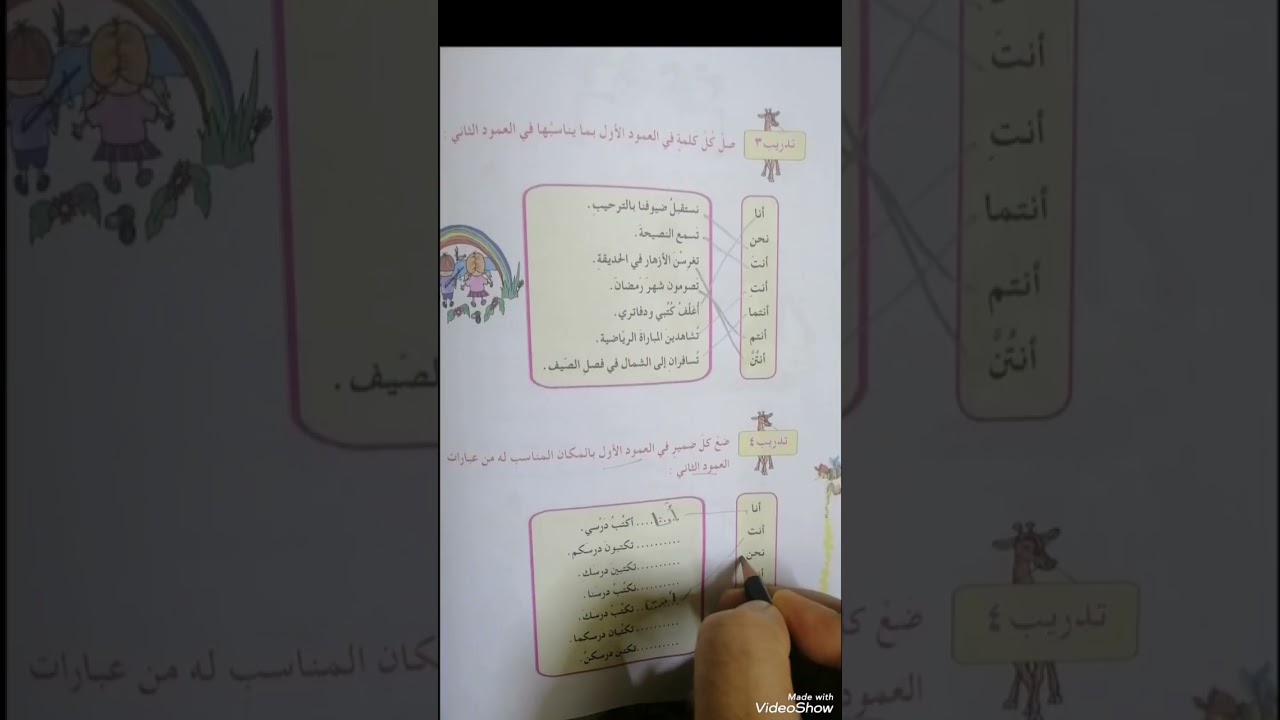 تدريب ٣
صلْ كُلّ كلمةٍ في العمود الأول بما يناسبُها في العمود الثاني :
أنا
نحن
أنتَ
أنتِ
أنتما
أنتم
أنتُنَّ
نستقبلُ ضيوفنا بالترحيب .
تسمع النصيحةَ .
تغرسْنَ الأزهار في الحديقةِ .
تَصومون شهرَ رَمضانَ .
أُغلّفُ كُتُبي ودفاتري .
تُشاهدينَ المباراةَ الرياضية .
تُسافران إلى الشمال في فصلِ الصَيف .
تدريب ٤
ضعْ كلّ ضميرٍ في العمود الأول بالمكان المناسب له من عبارات
العمود الثاني :
أنا
أنت
نحن
أنا .... أكتُبُ دَرْسي .
.......... تكتبونَ درسكم .
.......... تكتبين درسك .
.......... نكتُبُ درسَنا .
أنت .. تكتُبُ درسكَ .
.......... تكتُبان درسكما .
.......... تكتبن درسكنَّ .
أنتَ
أنتِ
أنتما
أنتم
أنتُنَّ
الصَيف .
تدريب ٤
ضعْ ك
كان المناسب له من عبارات
العمود
Made with
VideoShow